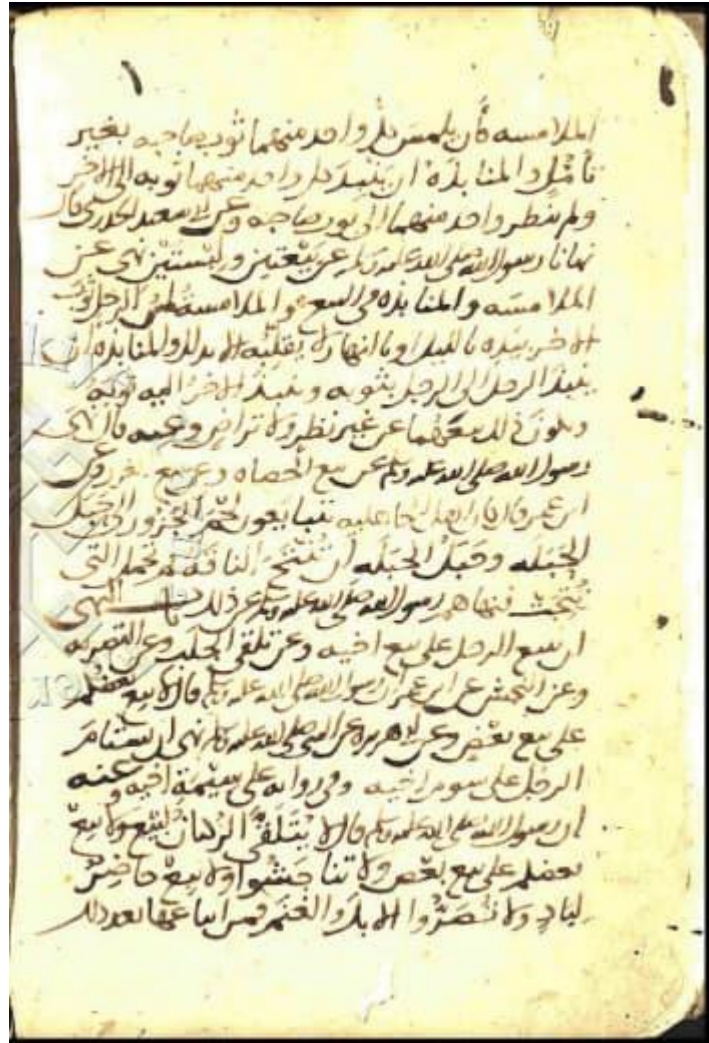 الملامسه فأن يلمس كل واحد منهما ثوب صاحبه بغير
تأمل والمنابذه ان ينبذ كل واحد منهما ثوبه الى الاخر
ولم ينظر واحد منهما الى ثوب صاحبه وعن ابى سعيد الخدرى قال
نهانا رسول الله صلى الله عليه وسلم عن بيعتين ولبستين نهى عن
الملامسه والمنابذه فى البيع والملامسة لمس الرجل ثوب
الاخر بيده بالليل او بالنهار ولا يقلبه الا بذلك والمنابذه ان
ينبذ الرجل الى الرجل بثوبه وينبذ الاخر اليه ثوبه
ويكون ذلك بيعهما عن غير نظر ولا تراض وعنه قال نهى
رسول الله صلى الله عليه وسلم عن بيع الحصاه وعن بيع الغرر وعن
ابن عمر قال كان اهل الجاهليه يتبايعون لحم الجزور الى حبل
الحبله وحبل الحبله ان تنتج الناقه ثم تحمل التى
نتجت فنهاهم رسول الله صلى الله عليه وسلم عن ذلك باب النهى
ان يبيع الرجل على بيع اخيه وعن تلقى الجلب وعن التصريه
وعن النجش عن ابن عمر ان رسول الله صلى الله عليه وسلم قال لا يبيع بعضكم
على بيع بعض وعن ابى هريرة عن النبى صلى الله عليه وسلم نهى ان يستام
الرجل على سوم اخيه وفى روايه على سيمة اخيه وعنه
ان رسول الله صلى الله عليه وسلم قال لا يتلقى الركبان لبيع ولا يبيع
بعضكم على بيع بعض ولا تناجشوا ولا يبيع حاضر
لباد ولا تصروا الابل والغنم فمن ابتاعها بعد ذلك